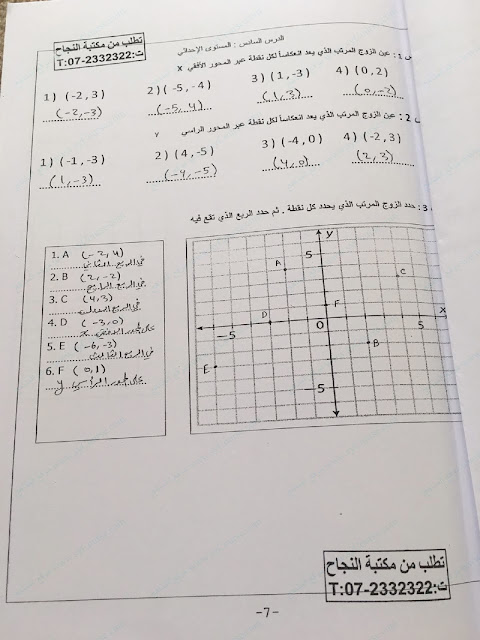 تطلب من مكتبة النجاح
ت:T:07-2332322
الدرس السادس : المستوى الإحداثي
س 1 : عين الزوج المرتب الذي يعد انعكاساً لكل نقطة عبر المحور الأفقي x
1) (-2, 3) 2) (-5, -4) 3) (1, -3) 4) (0, 2)
(-2, -3) (-5, 4) (1, 3) (0, -2)
2 : عين الزوج المرتب الذي يعد انعكاساً لكل نقطة عبر المحور الراسي y
1) (-1, -3) 2) (4, -5) 3) (-4, 0) 4) (-2, 3)
(1, -3) (-4, -5) (4, 0) (2, 3)
3 : حدد الزوج المرتب الذي يحدد كل نقطة . ثم حدد الربع الذي تقع فيه
1. A (-2, 4)
في الربع الثاني
2. B (2, -2)
في الربع الرابع
3. C (4, 3)
في الربع
4. D (-3, 0)
على
5. E (-6, -3)
في الربع الثالث
6. F (0, 1)
على المحور الرأسي y
y
5
A
C
F
x
D
-5
0
5
B
E
-5
تطلب من مكتبة النجاح
ت:T:07-2332322
-7-